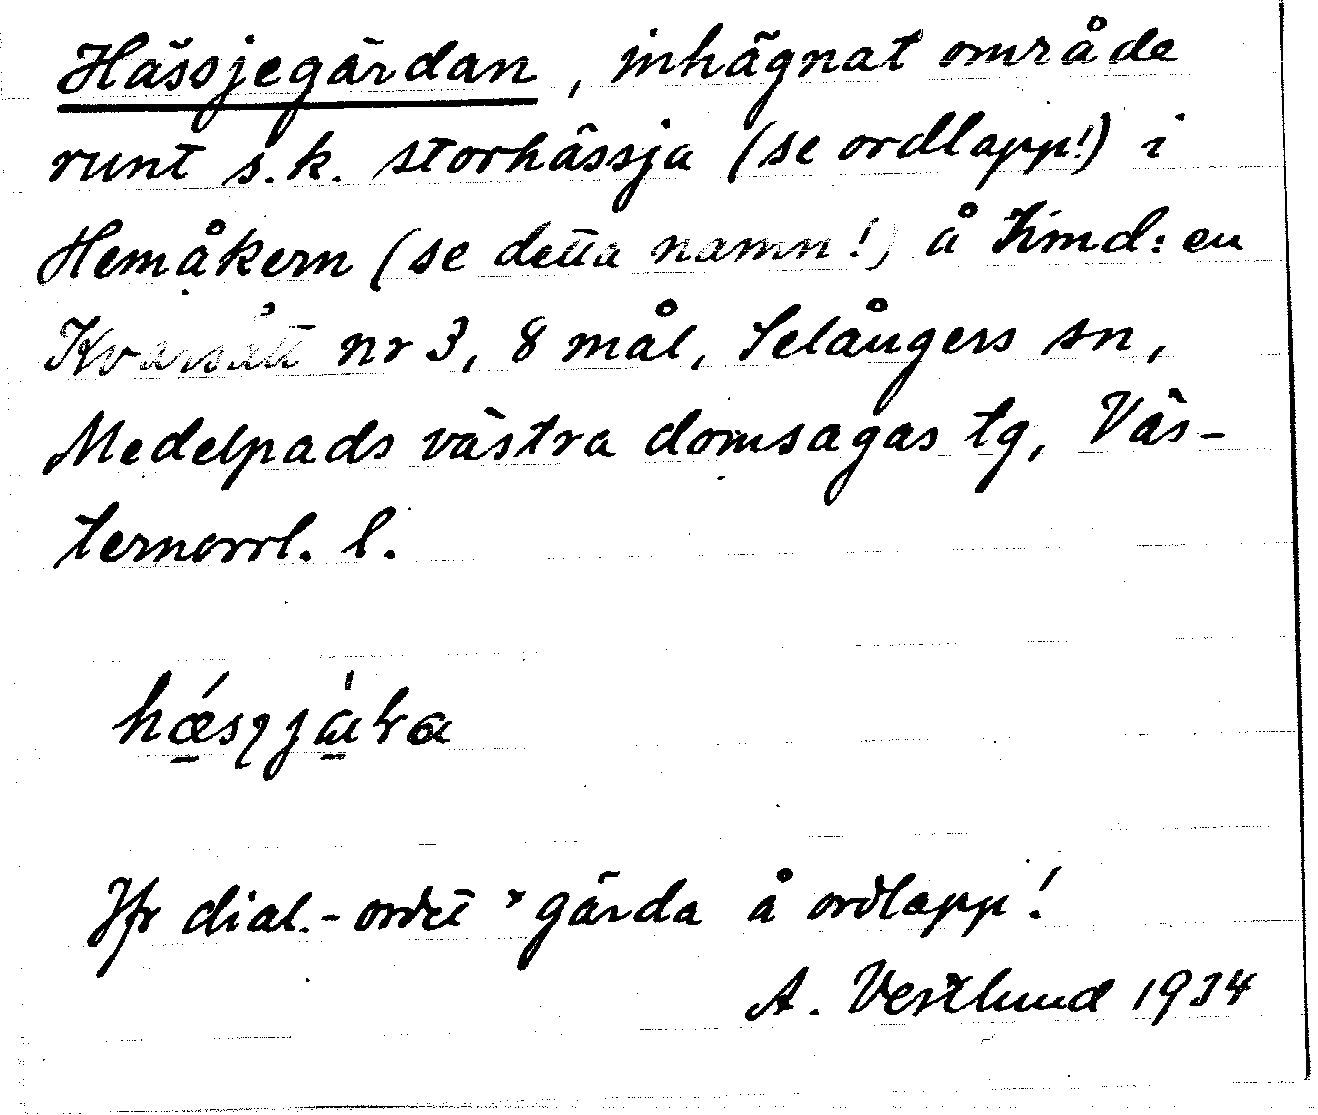 Hässjegärdan, inhägnat område
runt s.k. storhässja (se ordlapp!) i
Hemåkern (se detta namn!) å Hmd:en
Kvarsätt nr 3, 8 mål, Selångers sn,
Medelpads västra domsagas tg, Väs-
ternorrl. l.
Jfr dial.-ordet *gärda å ordlapp!
A. Vestlund 1934